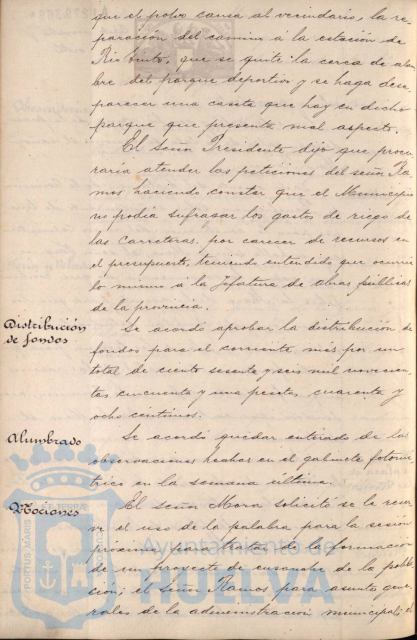 que el polvo causa al vecindario, la re-
paración del camino á la estación de
Rio tinto, que se quite la cerca de alam-
bre del parque deportivo y se haga desa-
parecer una caseta que hay en dicho
parque que presenta mal aspecto.
El Señor Presidente dijo que procu-
raría atender las peticiones del señor Ra-
mos haciendo constar que el Municipio
no podía sufragar los gastos de riego de
las carreteras, por carecer de recursos en
el presupuesto, teniendo entendido que ocurre
lo mismo á la Jefatura de obras públicas
de la provincia.
Distribución de fondos
Se acordó aprobar la distribución de
fondos para el corriente mes por un
total de ciento sesenta y seis mil novecien-
tas cincuenta y una peseta, cuarenta y
ocho centimos.
Alumbrado
Se acordó quedar enterado de las
observaciones hechas en el gabinete fotomé-
trico en la semana última.
Mociones
El señor Mora solicitó se le reser-
ve el uso de la palabra para la sesión
próxima para tratar de la formación
de un proyecto de ensanche de la pobla-
ción; el Señor Ramos para asuntos gene-
rales de la administración municipal; el
PORTUS MARIS
Ayuntamiento de
HUELVA